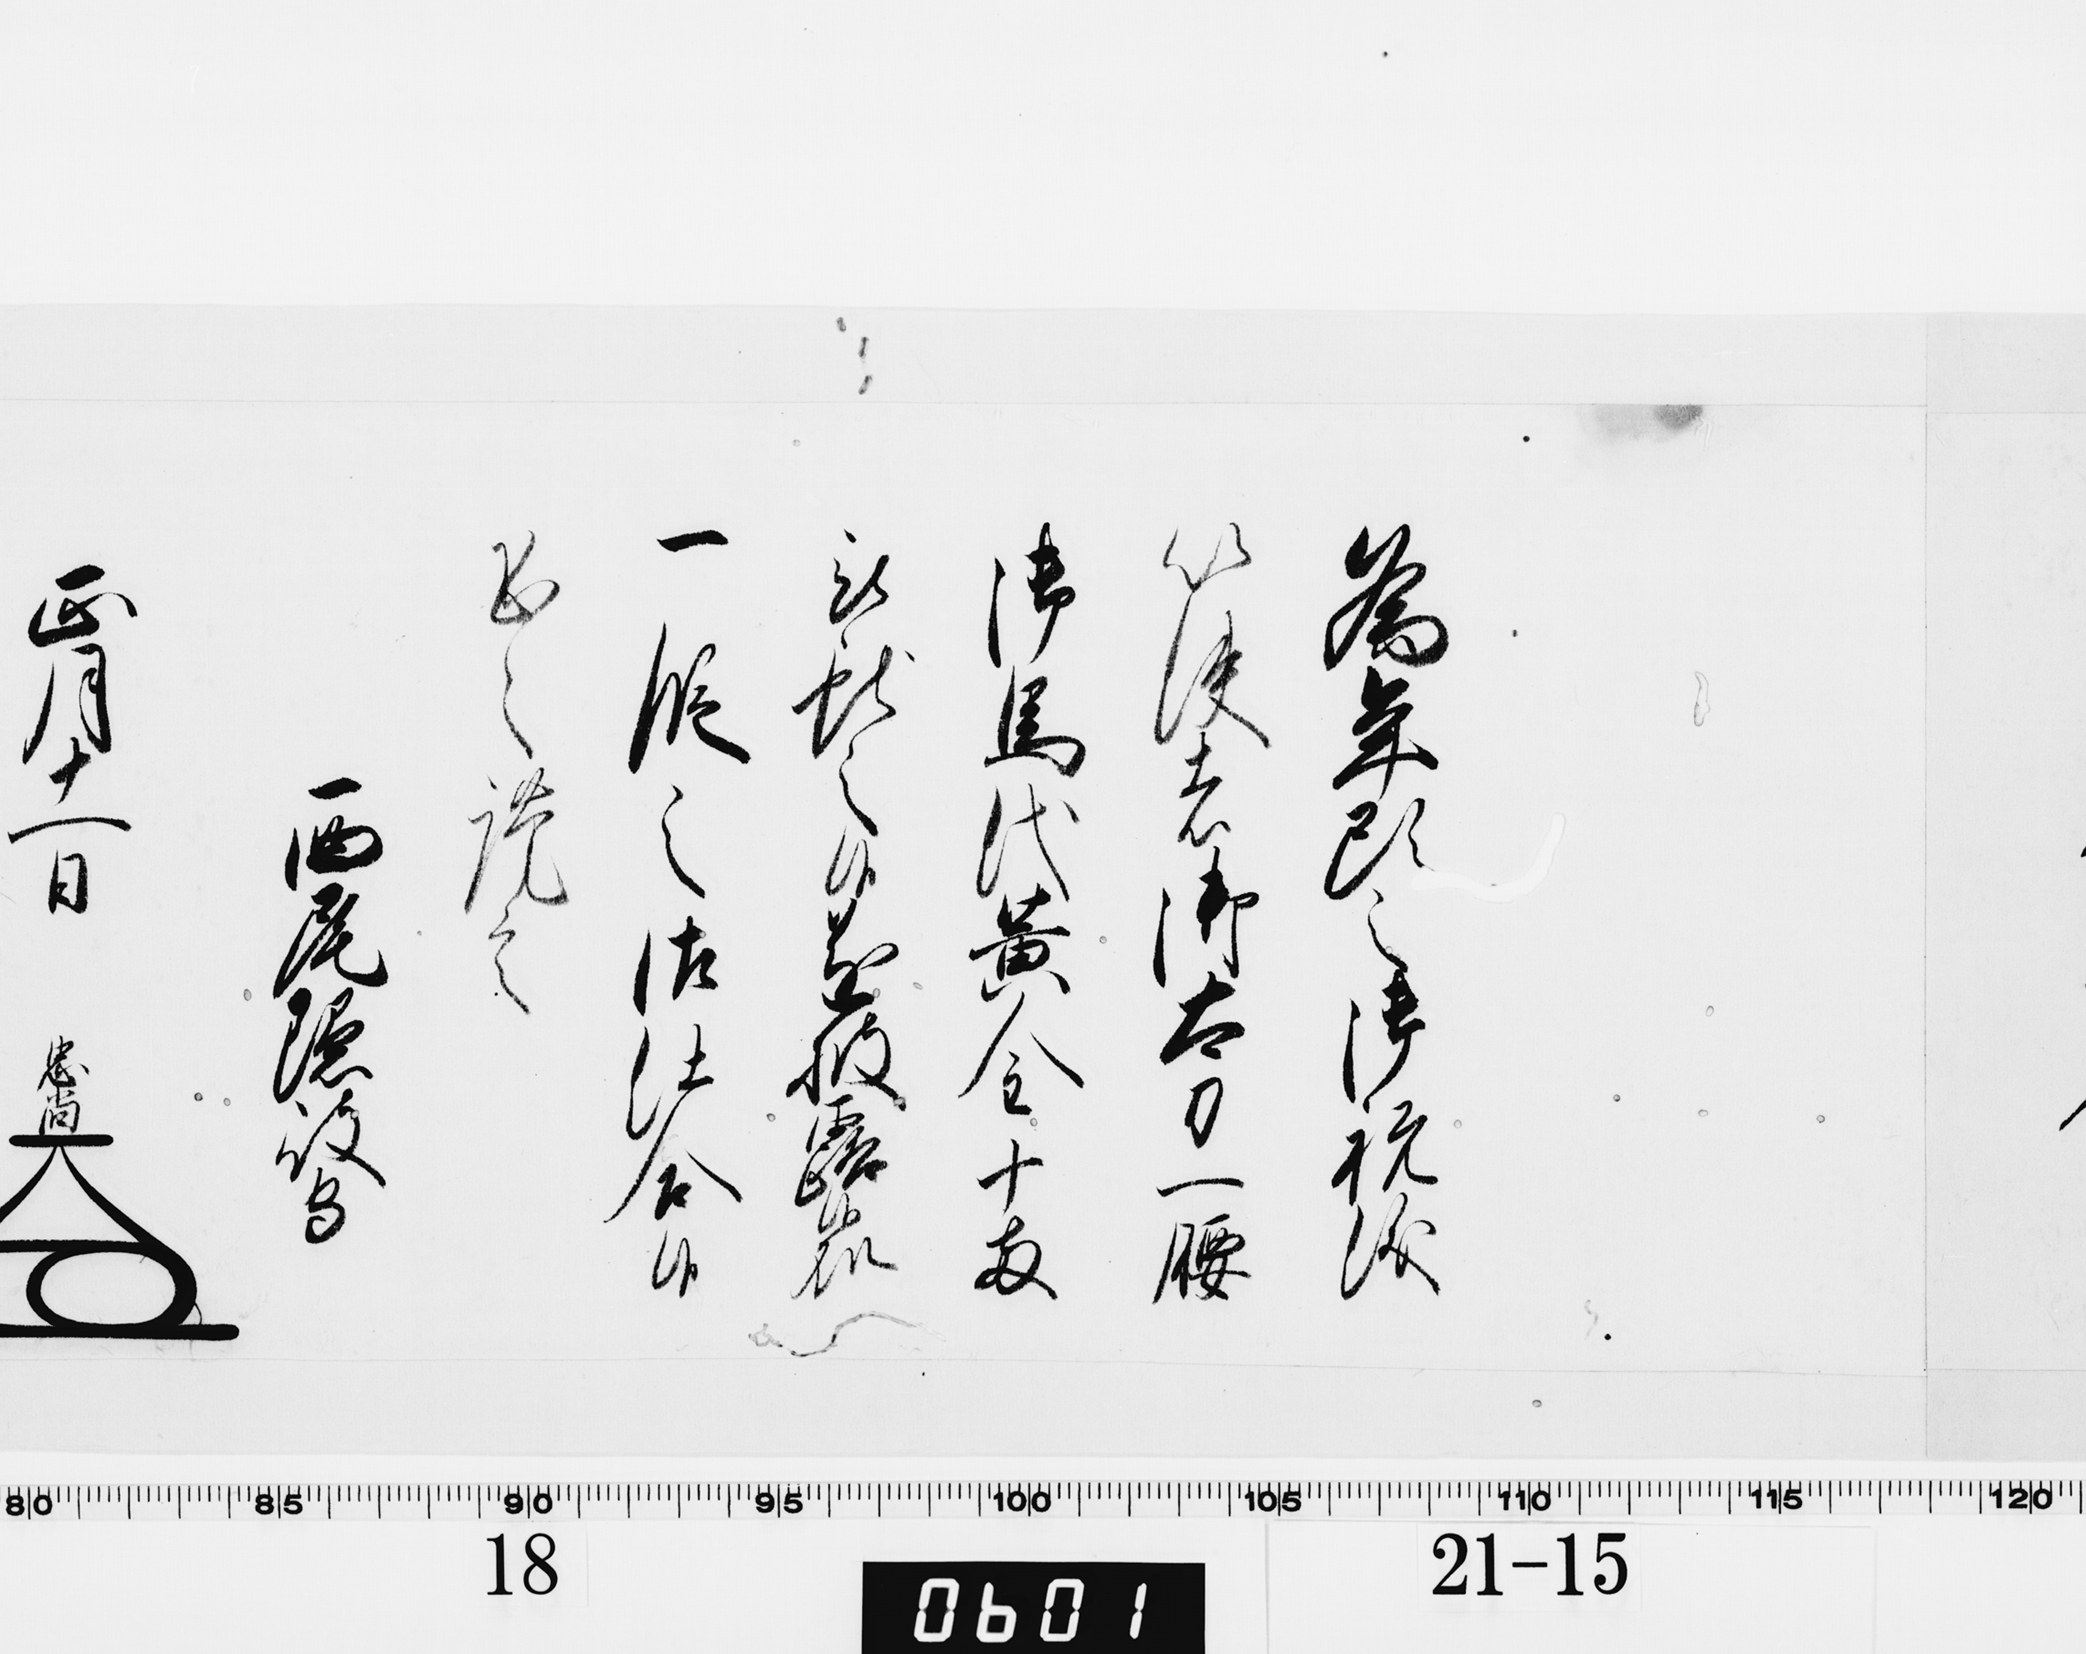 為年頭之御祝儀
以使者御太刀一腰
御馬代黄金十両
被献之候遂披露候処
一段之御仕合候
恐々謹言
西尾隠岐守
正月十一日
忠尚
80 85 90 95 100 105 110 115 120
18
0601
21-15